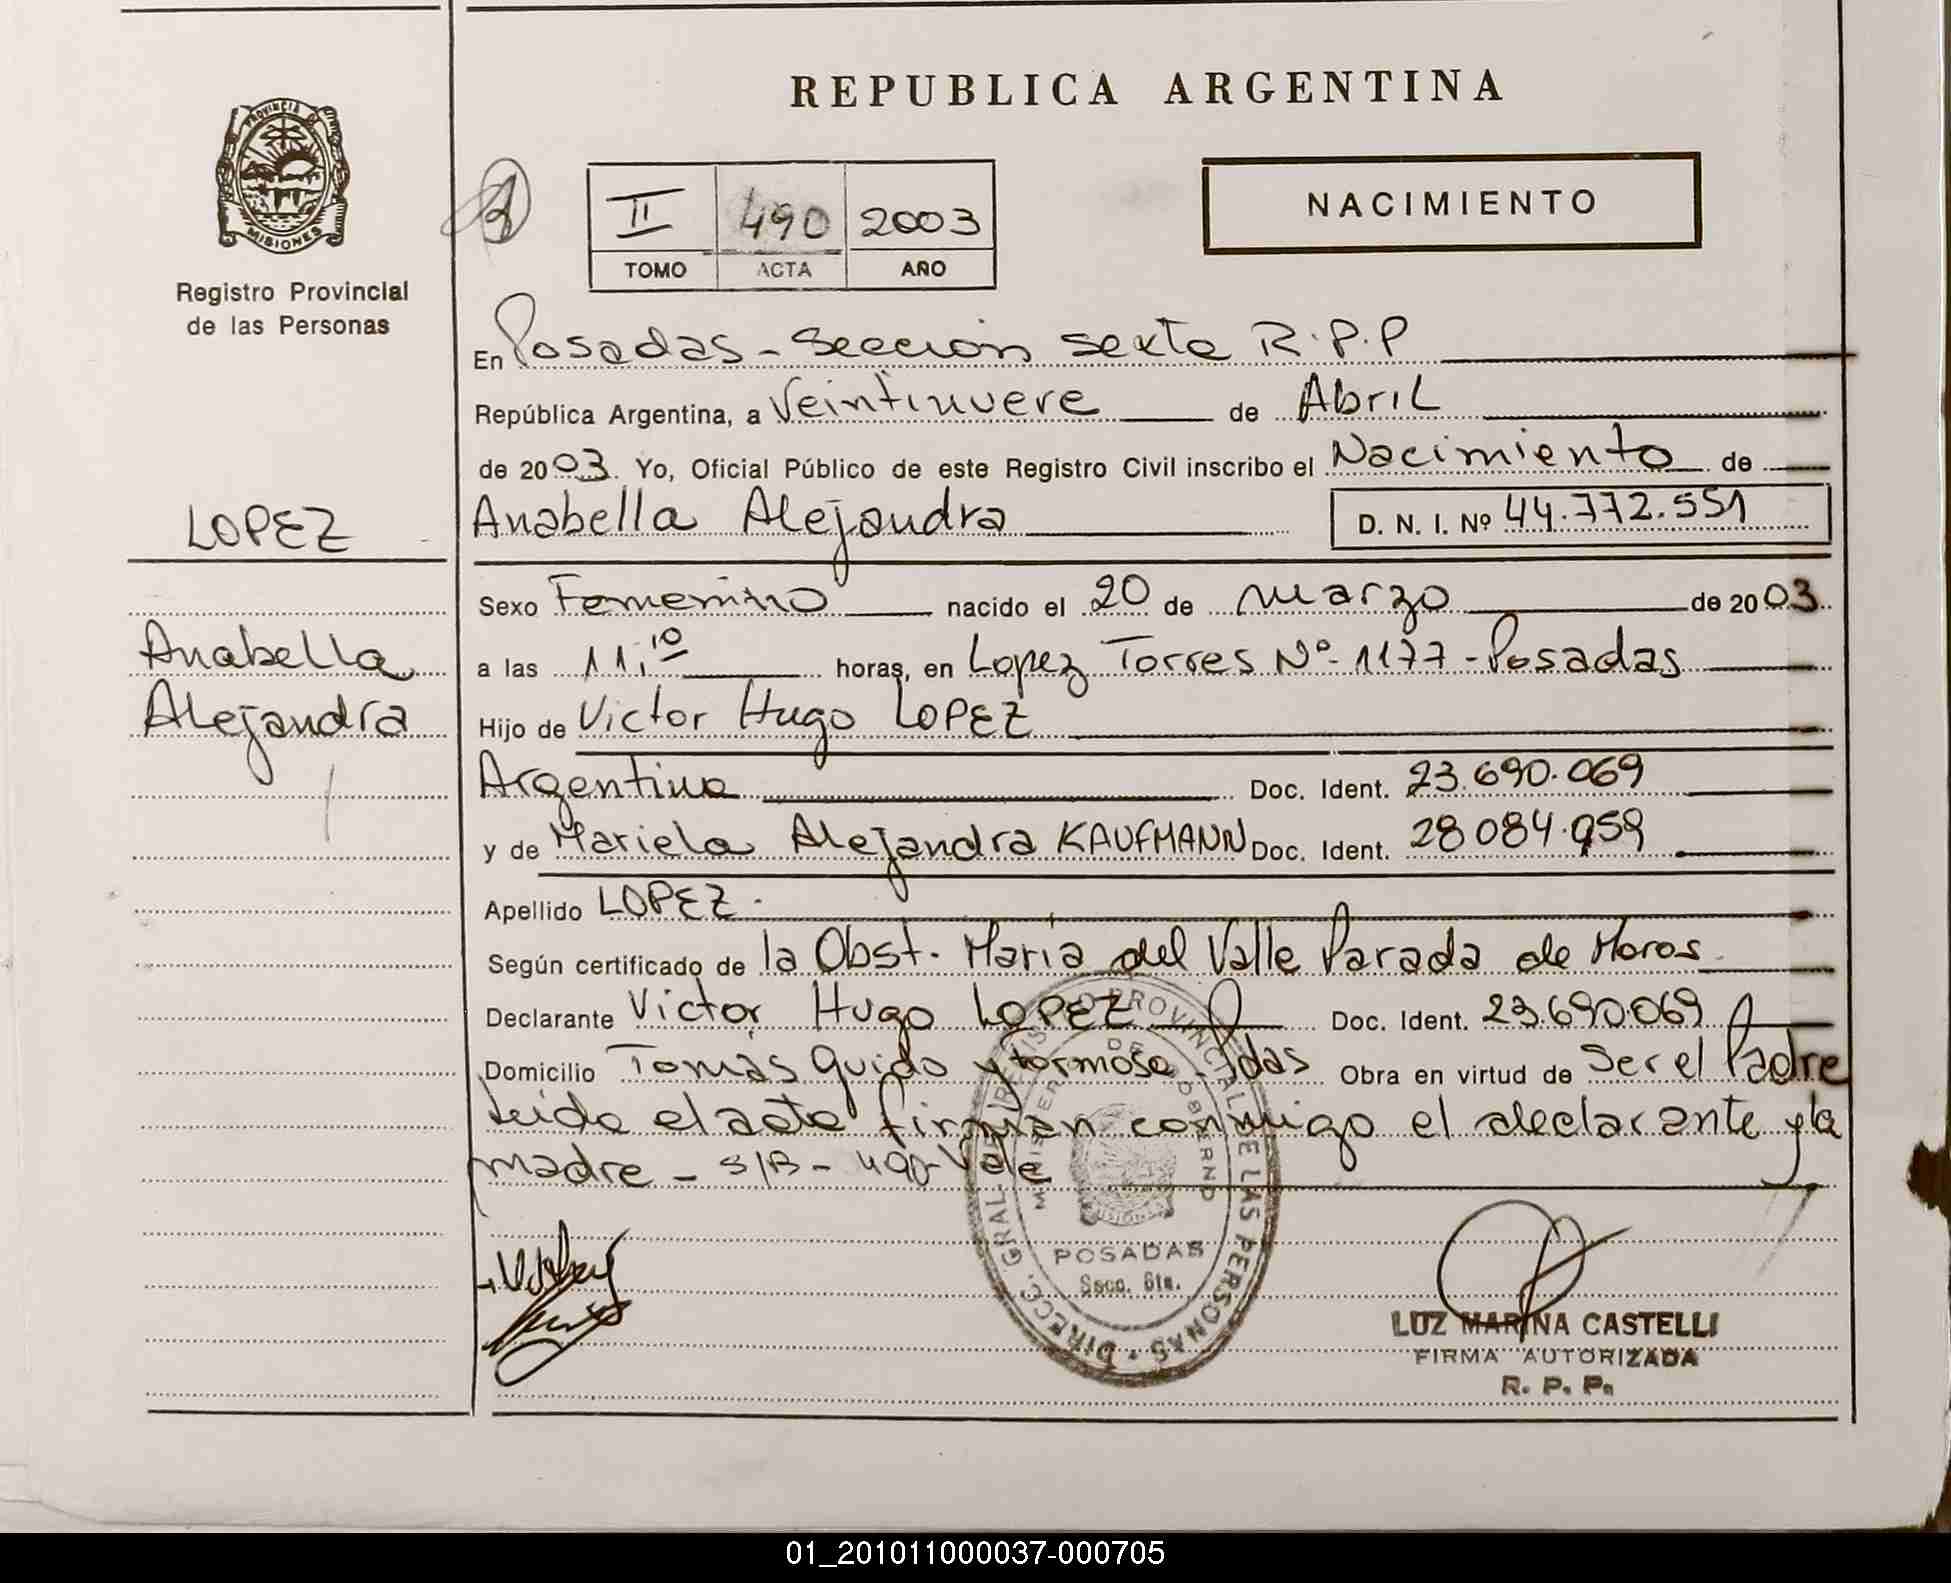 REPUBLICA ARGENTINA
PROVINCIA DE MISIONES
Registro Provincial
de las Personas
II 490 2003
TOMO ACTA AÑO
NACIMIENTO
En Posadas - Sección sexta R.P.P
República Argentina, a Veintinueve de Abril
de 2003. Yo, Oficial Público de este Registro Civil inscribo el Nacimiento de
LOPEZ
Anabella Alejandra D. N. I. Nº 44.772.551
Sexo Femenino nacido el 20 de marzo de 2003.
Anabella
a las 11,10 horas, en Lopez Torres Nº 1177 - Posadas
Alejandra
Hijo de Victor Hugo LOPEZ
Argentina Doc. Ident. 23.690.069
y de Mariela Alejandra KAUFMANN Doc. Ident. 28084.959
Apellido LOPEZ.
Según certificado de la Obst. Maria del Valle Parada de Moros
Declarante Victor Hugo LOPEZ Doc. Ident. 23.690.069
Domicilio Tomás Guido y formosa - Pdas Obra en virtud de Ser el Padre
Leido el acta firman conmigo el declarante y la
madre - S/R - 490 Vale
DIRECC. GRAL. REGISTRO PROVINCIAL DE LAS PERSONAS
MINISTERIO DE GOBIERNO
MISIONES
POSADAS
Secc. 6ta.
LUZ MARINA CASTELLI
FIRMA AUTORIZADA
R. P. P.
01_201011000037-000705